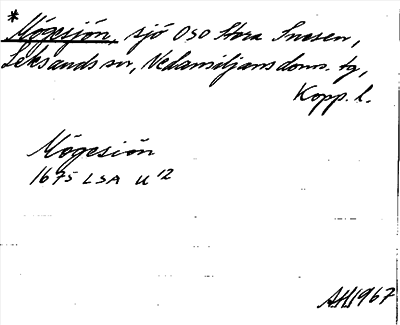 * Mögesjön, sjö OSO Stora Snesen,
Leksands sn, Nedansiljans doms. tg,
Kopp. l.
Mögesiön
1675 LSA U 12
AH 1967